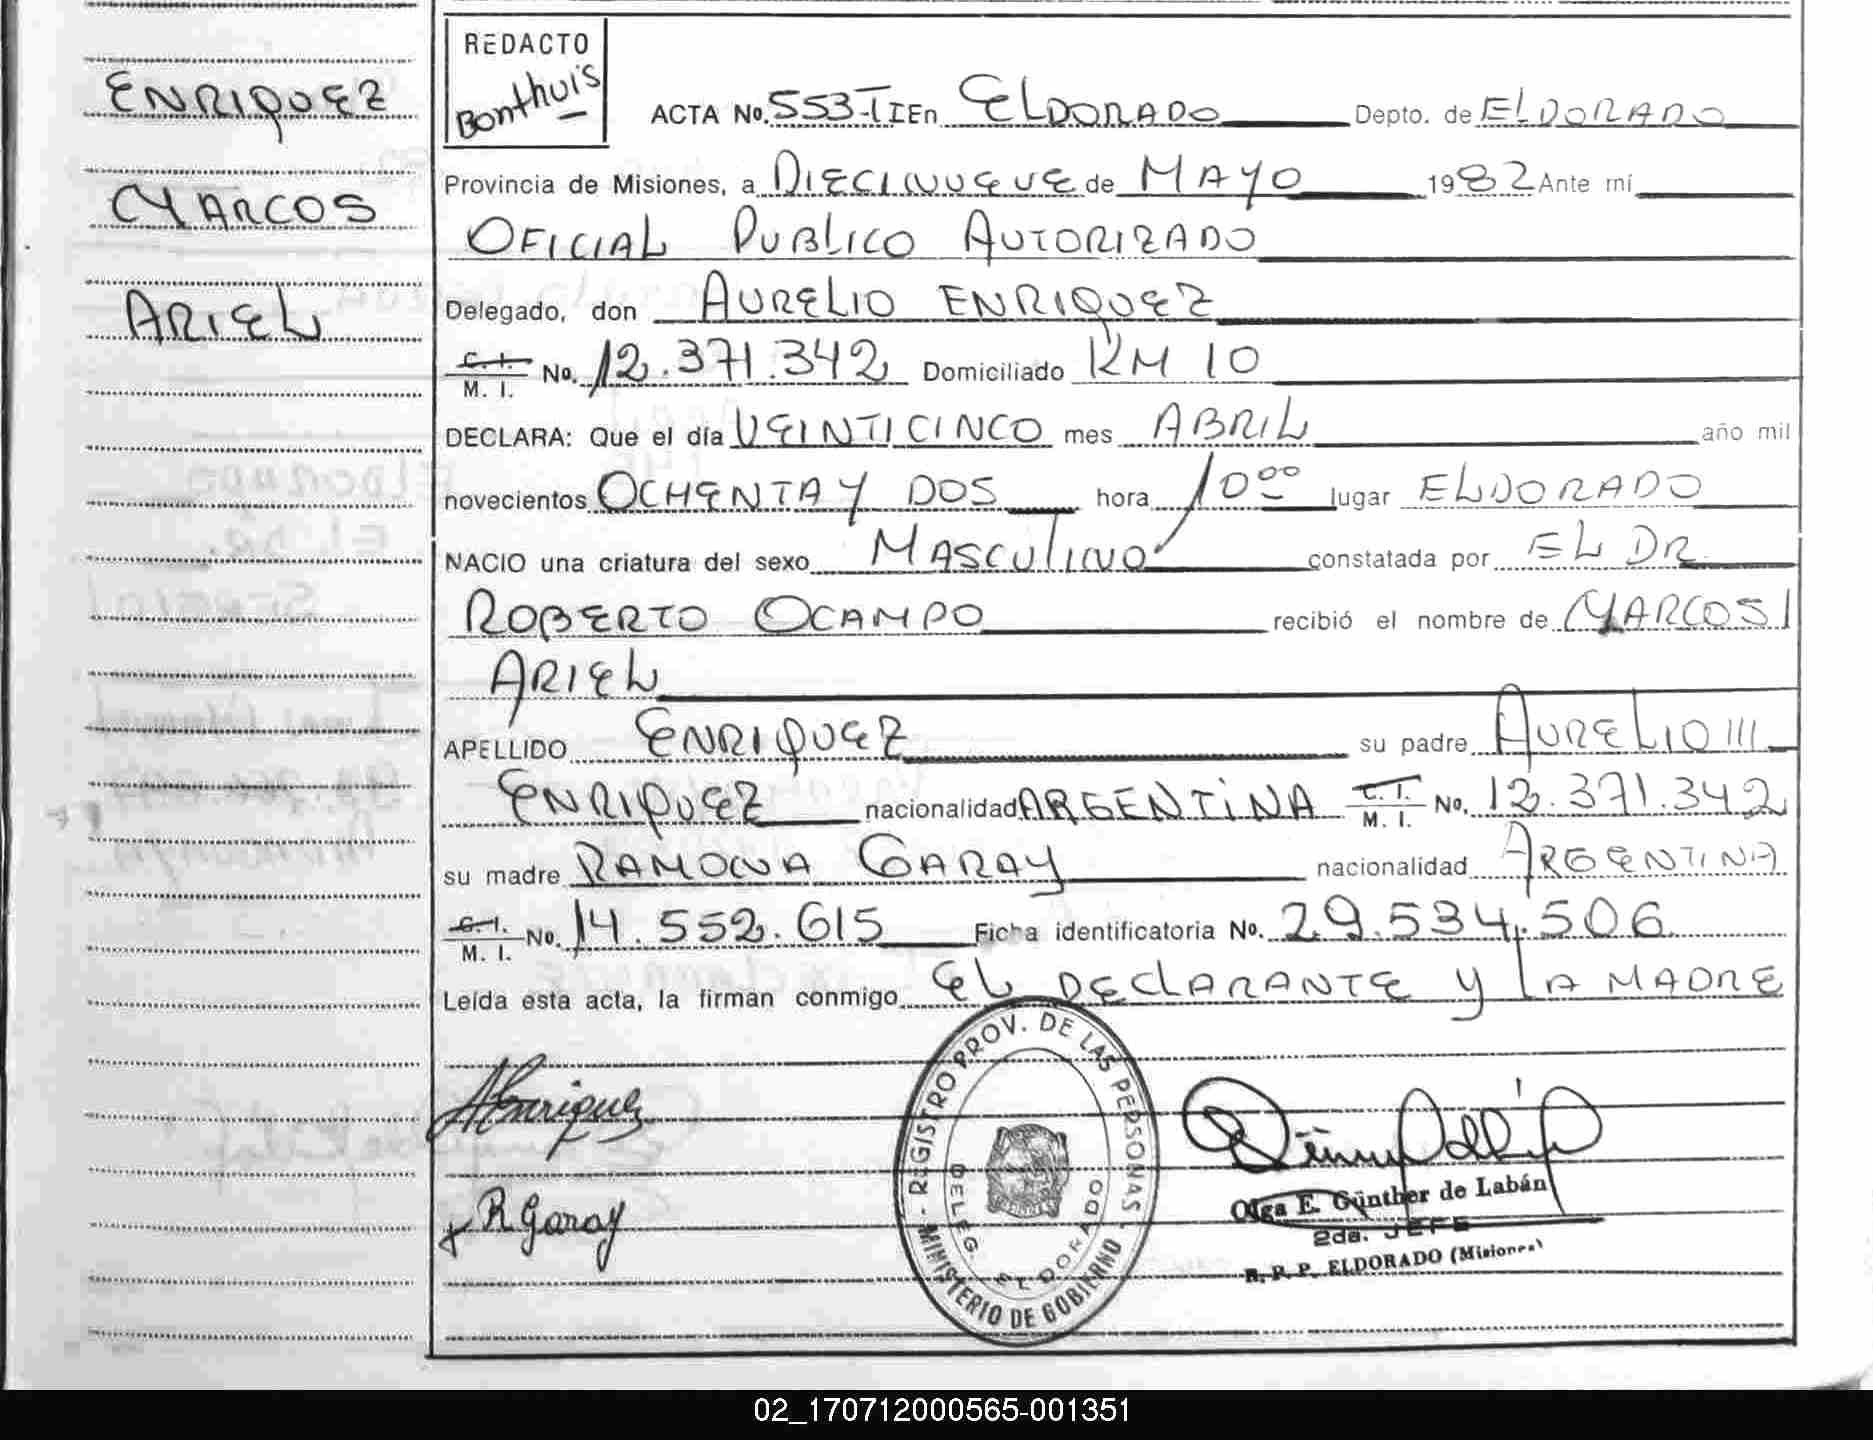 ENRIQUEZ
MARCOS
ARIEL
REDACTO
Bonthuis
ACTA No. 553-T I En ELDORADO Depto. de ELDORADO
Provincia de Misiones, a DIECINUEVE de MAYO 1982 Ante mí
OFICIAL PUBLICO AUTORIZADO
Delegado, don AURELIO ENRIQUEZ
C. I.
M. I. No. 12.371.342 Domiciliado KM 10
DECLARA: Que el día VEINTICINCO mes ABRIL año mil
novecientos OCHENTA Y DOS hora 10 00 lugar ELDORADO
NACIO una criatura del sexo MASCULINO constatada por EL DR.
ROBERTO OCAMPO recibió el nombre de MARCOS
ARIEL
APELLIDO ENRIQUEZ su padre AURELIO
ENRIQUEZ nacionalidad ARGENTINA C. I. M. I. No. 12.371.342
su madre RAMONA GARAY nacionalidad ARGENTINA
C. I.
M. I. No. 14.552.615 Ficha identificatoria No. 29.534.506
Leída esta acta, la firman conmigo EL DECLARANTE Y LA MADRE
AEnriquez
R Garay
REGISTRO PROV. DE LAS PERSONAS - MINISTERIO DE GOBIERNO -
DELEG. ELDORADO
Olga E. Günther de Labán
2da. JEFE
R. P. P. ELDORADO (Misiones)
02_170712000565-001351